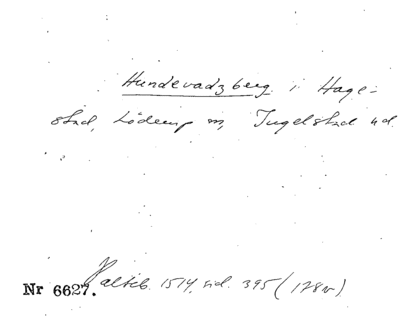 Hundevadzberg i Hage-
stad, Löderup sn, Ingelstad hd.
Nr 6627. Palteb. 1514, sid. 395 (178v)